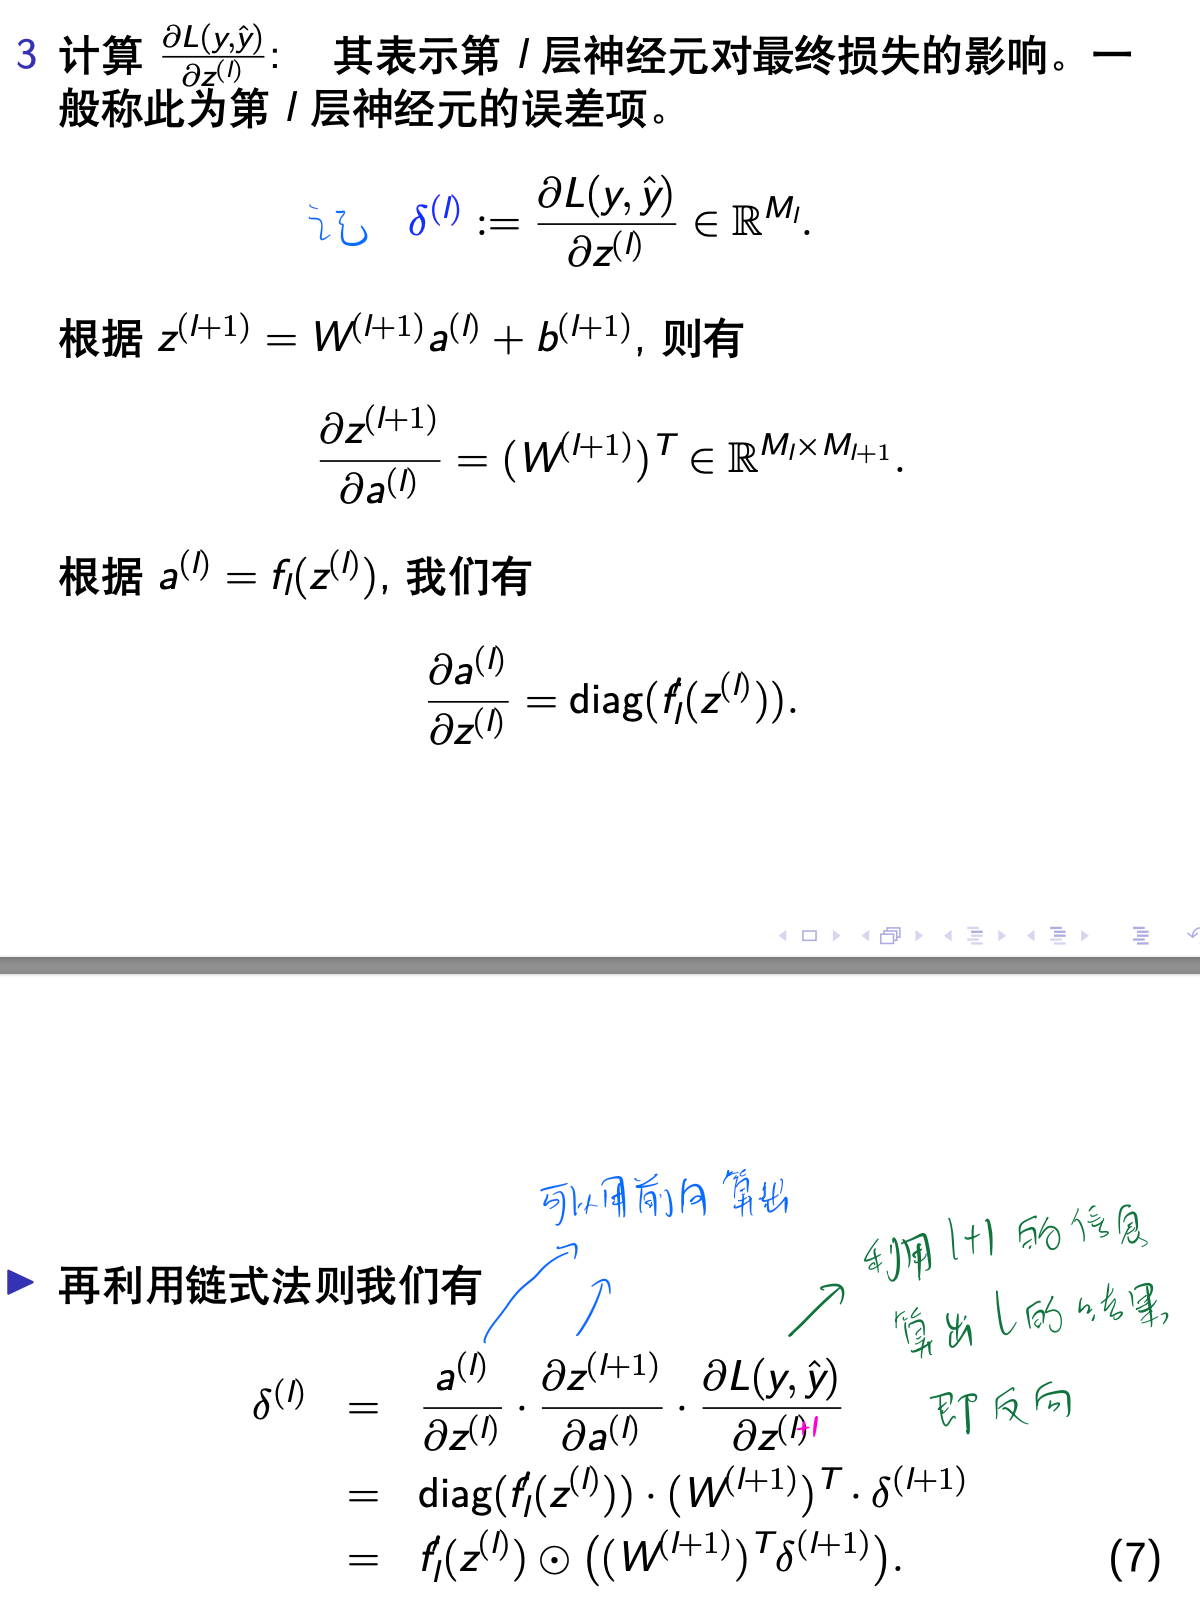 3 计算 ∂L(y,ŷ)/∂z^(l): 其表示第 l 层神经元对最终损失的影响。一
般称此为第 l 层神经元的误差项。
记 δ^(l) := ∂L(y, ŷ)/∂z^(l) ∈ ℝ^{M_l}.
根据 z^(l+1) = W^(l+1) a^(l) + b^(l+1), 则有
∂z^(l+1)/∂a^(l) = (W^(l+1))^T ∈ ℝ^{M_l×M_{l+1}}.
根据 a^(l) = f_l(z^(l)), 我们有
∂a^(l)/∂z^(l) = diag(f′_l(z^(l))).
可以用前向算出
利用 l+1 的信息
算出 l 的结果
即反向
▶ 再利用链式法则我们有
δ^(l) = a^(l)/∂z^(l) · ∂z^(l+1)/∂a^(l) · ∂L(y, ŷ)/∂z^(l)+1
= diag(f′_l(z^(l))) · (W^(l+1))^T · δ^(l+1)
= f′_l(z^(l)) ⊙ ((W^(l+1))^T δ^(l+1)). (7)